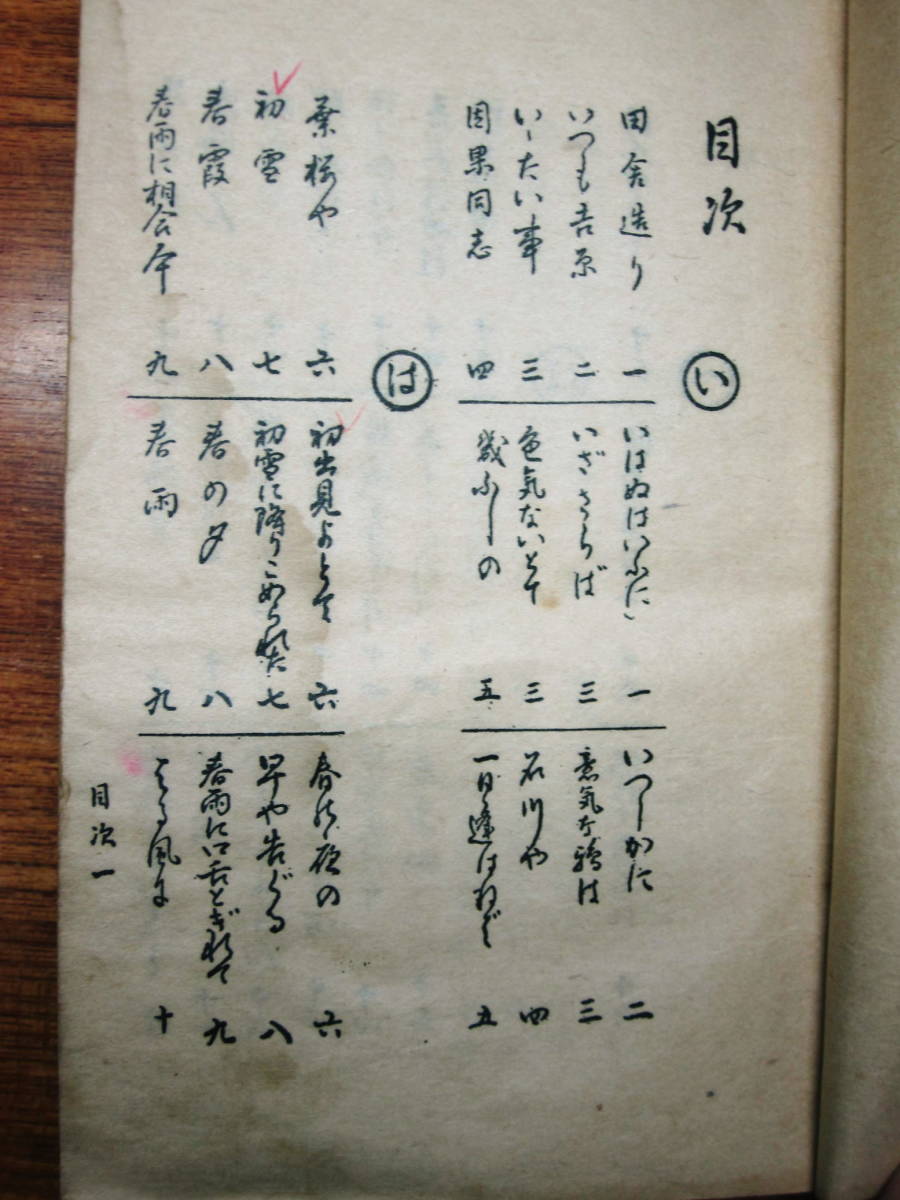 目次
い
田舎造り 一
いつも吉原 二
いーたい事 三
因果同志 四
いはぬはいふに 一
いざさらば 三
色気ないとて 三
幾ふしの 五
いつしかに 二
意気な鴉は 三
石川や 四
一日逢はねど 五
は
葉桜や 六
初雪 七
春霞 八
春雨に相合傘 九
初出見よとて 六
初雪に降りこめられた 七
春の夕 八
春雨 九
春の夜の 六
早や告ぐる 八
春雨に口舌とぎれて 九
はる風に 十
目次一